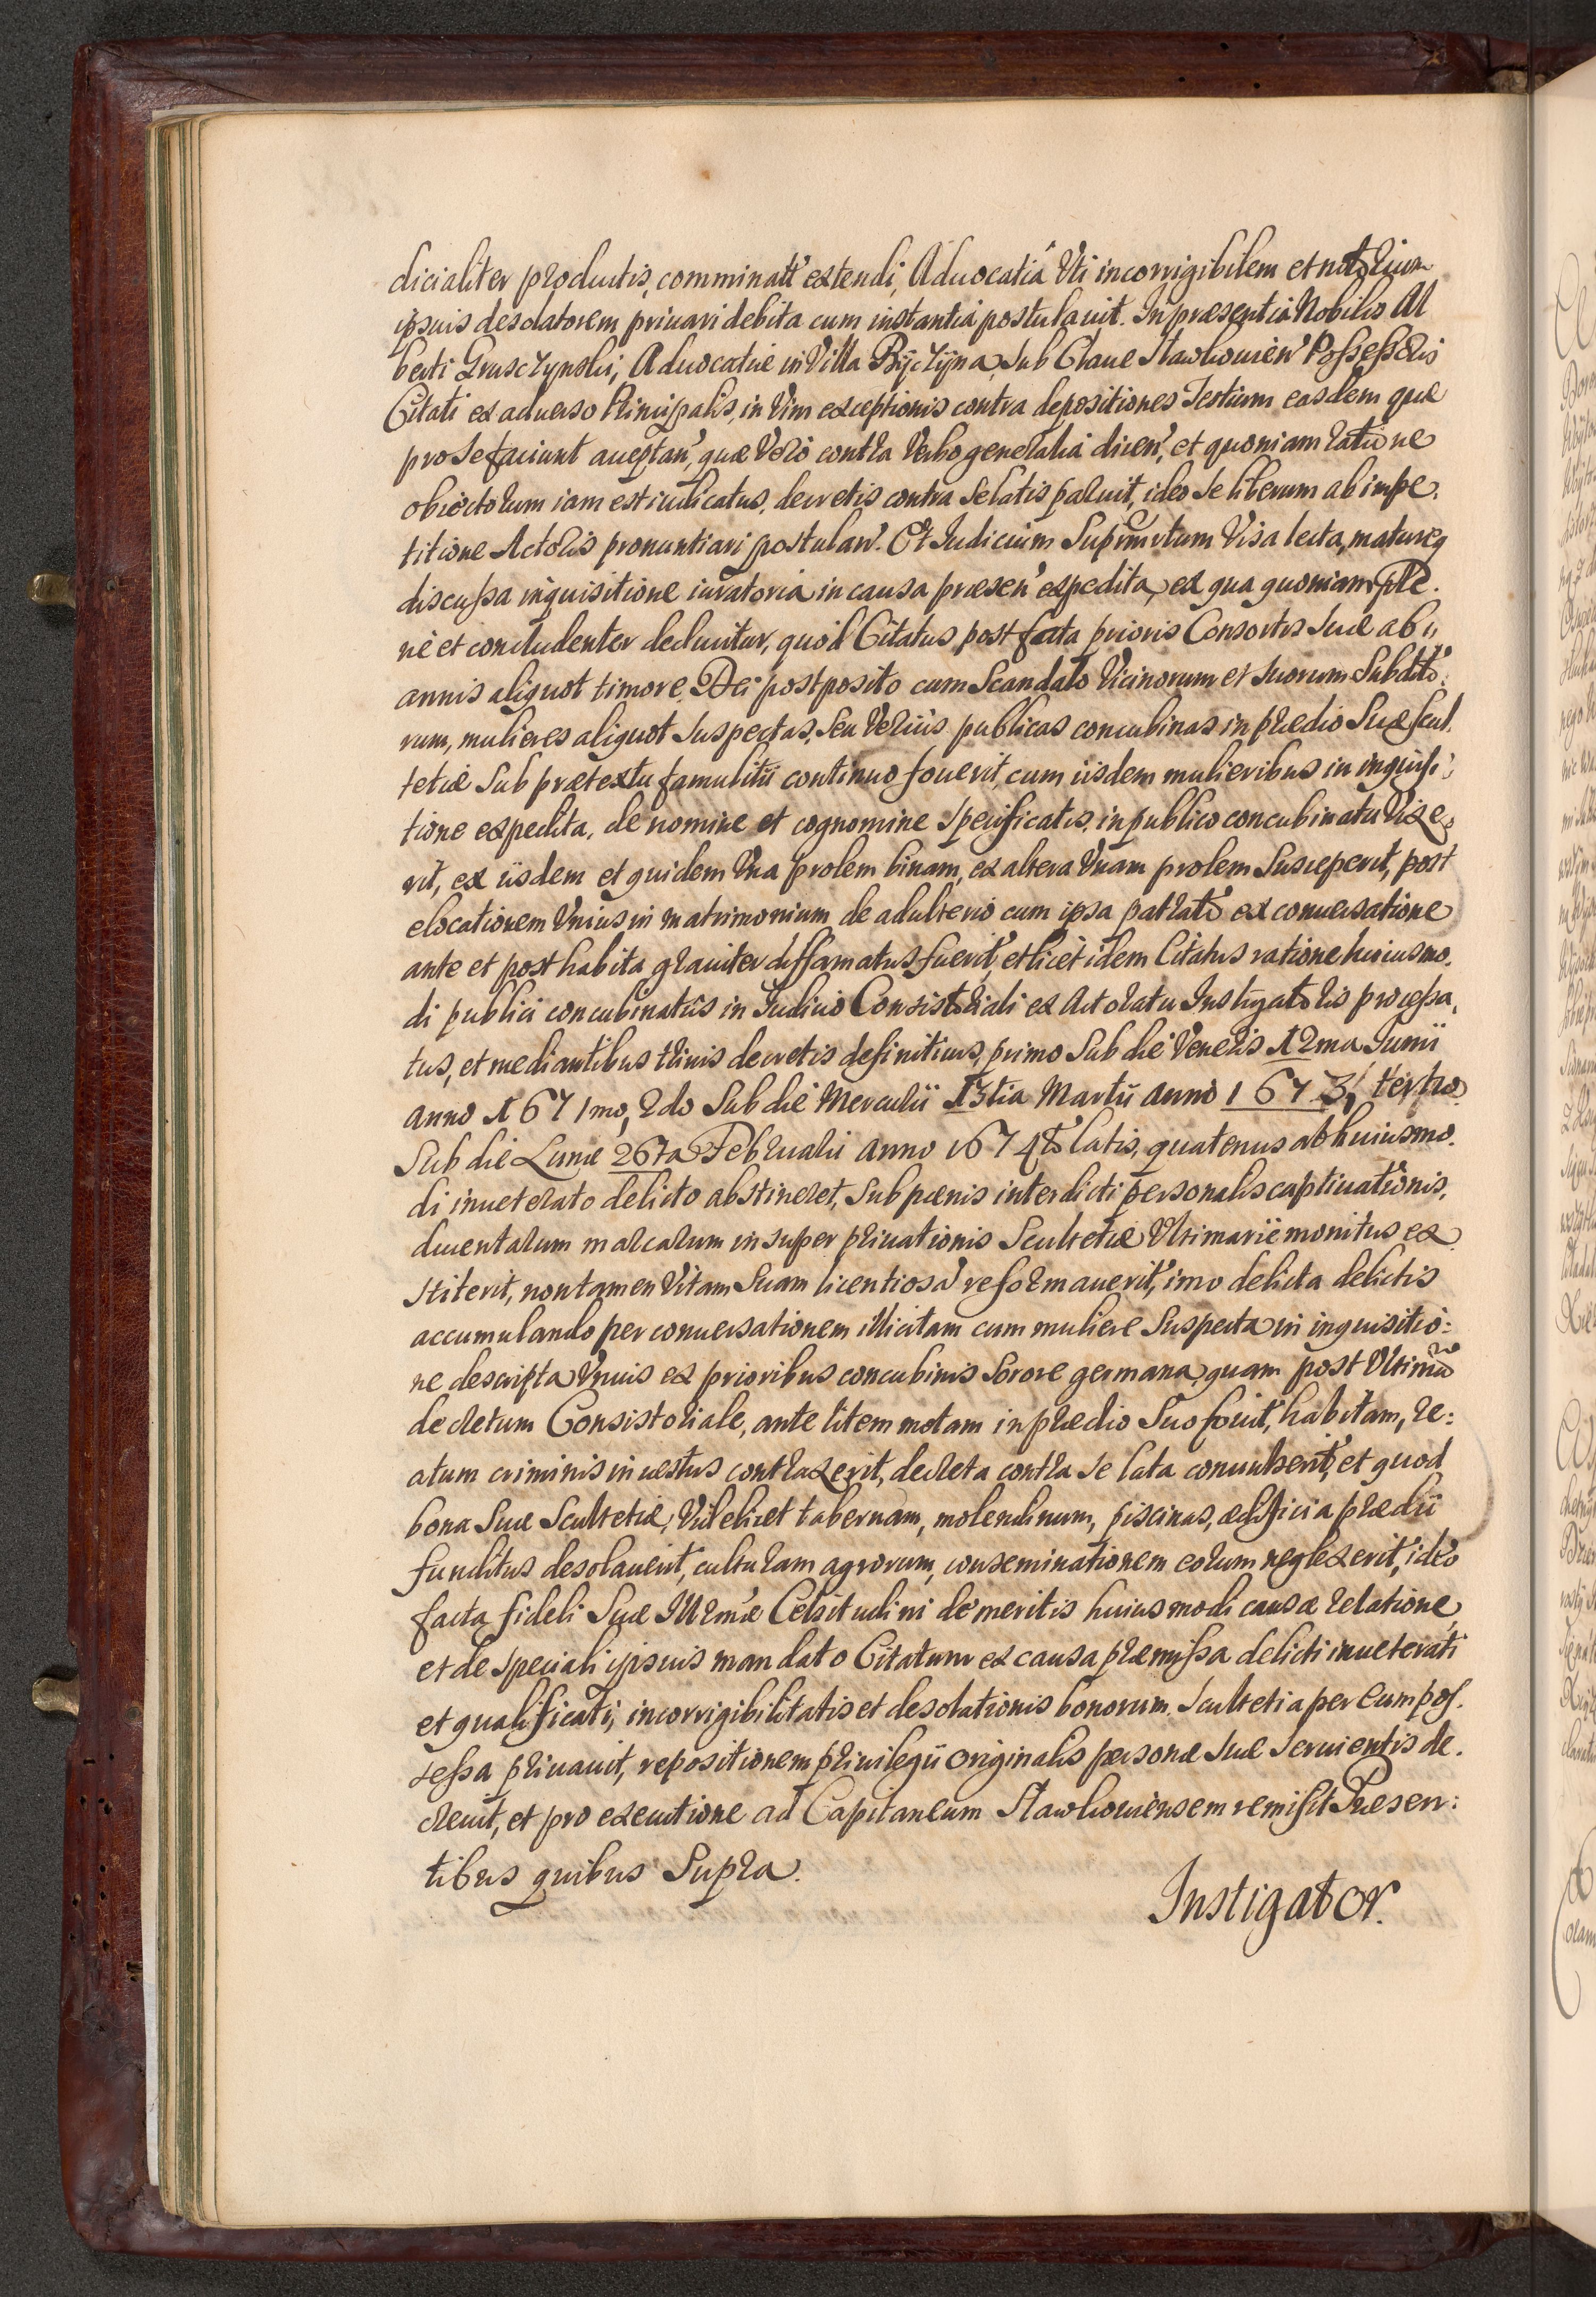 dicialiter productis, comminatt' extendi, Aduocatiâ Vti incorrigibilem et notorium
ipsius desolatorem priuari debita cum instantia postulauit. In præsentia Nobilis Al
berti Grusczynski, Aduocatiæ in Villa Byczyna, sub Claue Slawkouien' Possessoris
Citati ex aduerso Principalis, in Vim exceptionis contra depositiones Testium easdem quæ
pro se faciunt acceptan', quæ Verò contra Verbo generalia dicen', et quoniam ratione
obiectorum iam est iudicatus, decretis contra se latis paruit, ideo se liberum ab impe.
titione Actoris pronuntiari postulan'. Et Iudicium Suprmrtum Visa lecta, matureq
discussa inquisitione iuratoria in causa præsen' expedita, ex qua quoniam ple.
nè et concludenter deducitur, quòd Citatus post fata prioris Consortis suæ ab
annis aliquot timore Dei postposito cum Scandalo Vicinorum et suorum Subdito:
rum, mulieres aliquot suspectas, seu Veriùs publicas concubinas in prædio Suæ scul.
tetiæ sub prætextu famulitii continuo fouerit, cum iisdem mulieribus in inquisi:
tione expedita, de nomine et cognomine specificatis, in publico concubinatu Vixe.
rit, ex iisdem et quidem Vna prolem binam, ex altera Vnam prolem susceperit, post
elocationem Vnius in matrimonium de adulterio cum ipsa patrato ex conuersatione
ante et post habita grauiter diffamatus fuerit, et licèt idem Citatus ratione huiusmo.
di publici concubinatûs in Iudicio Consistoriali ex Actoratu Instigatoris processa,
tus, et mediantibus trinis decretis definitiuis, primo Sub die Veneris 12ma Iunii
anno 1671mo, 2do Sub die Mercurii 13tia Martii anno 1673, tertio
Sub die Lunæ 26ta Februarii anno 1674to latis, quatenus ab huiusmo.
di inueterato delicto abstineret, sub pænis interdicti personalis captiuationis,
ducentarum marcarum insuper priuationis Scultetiæ Vltimariè monitus ex
stiterit, non tamen Vitam suam licentiosâ reformauerit, imo delicta delictis
accumulando per conuersationem illicitam cum muliere suspecta in inquisitio:
ne descripta Vnius ex prioribus concubinis Sorore germana, quam post Vltimũ
decretum Consistoriale, ante litem motam in prædio Suo fouit, habitam, re:
atum criminis incæstus contraxerit, decreta contra se lata conuulserit, et quod
bona Suæ Scultetiæ, Videlicet tabernam, molendinum, piscinas, ædificia prædii
funditus desolauerit, culturam agrorum, conseminationem eorum neglexerit, ideò
facta fideli Suæ Illrmæ Celsitudini de meritis huiusmodi causæ relatione,
et de speciali ipsius mandato Citatum ex causa præmissa delicti inueterati
et qualificati, incorrigibilitatis et desolationis bonorum Scultetia per Eum pos.
sessa priuauit, repositionem priuilegii originalis personæ suæ seruientis de.
creuit, et pro executione ad Capitaneum Slawkouiensem remisit Præsen:
tibus quibus Supra.
Instigator.